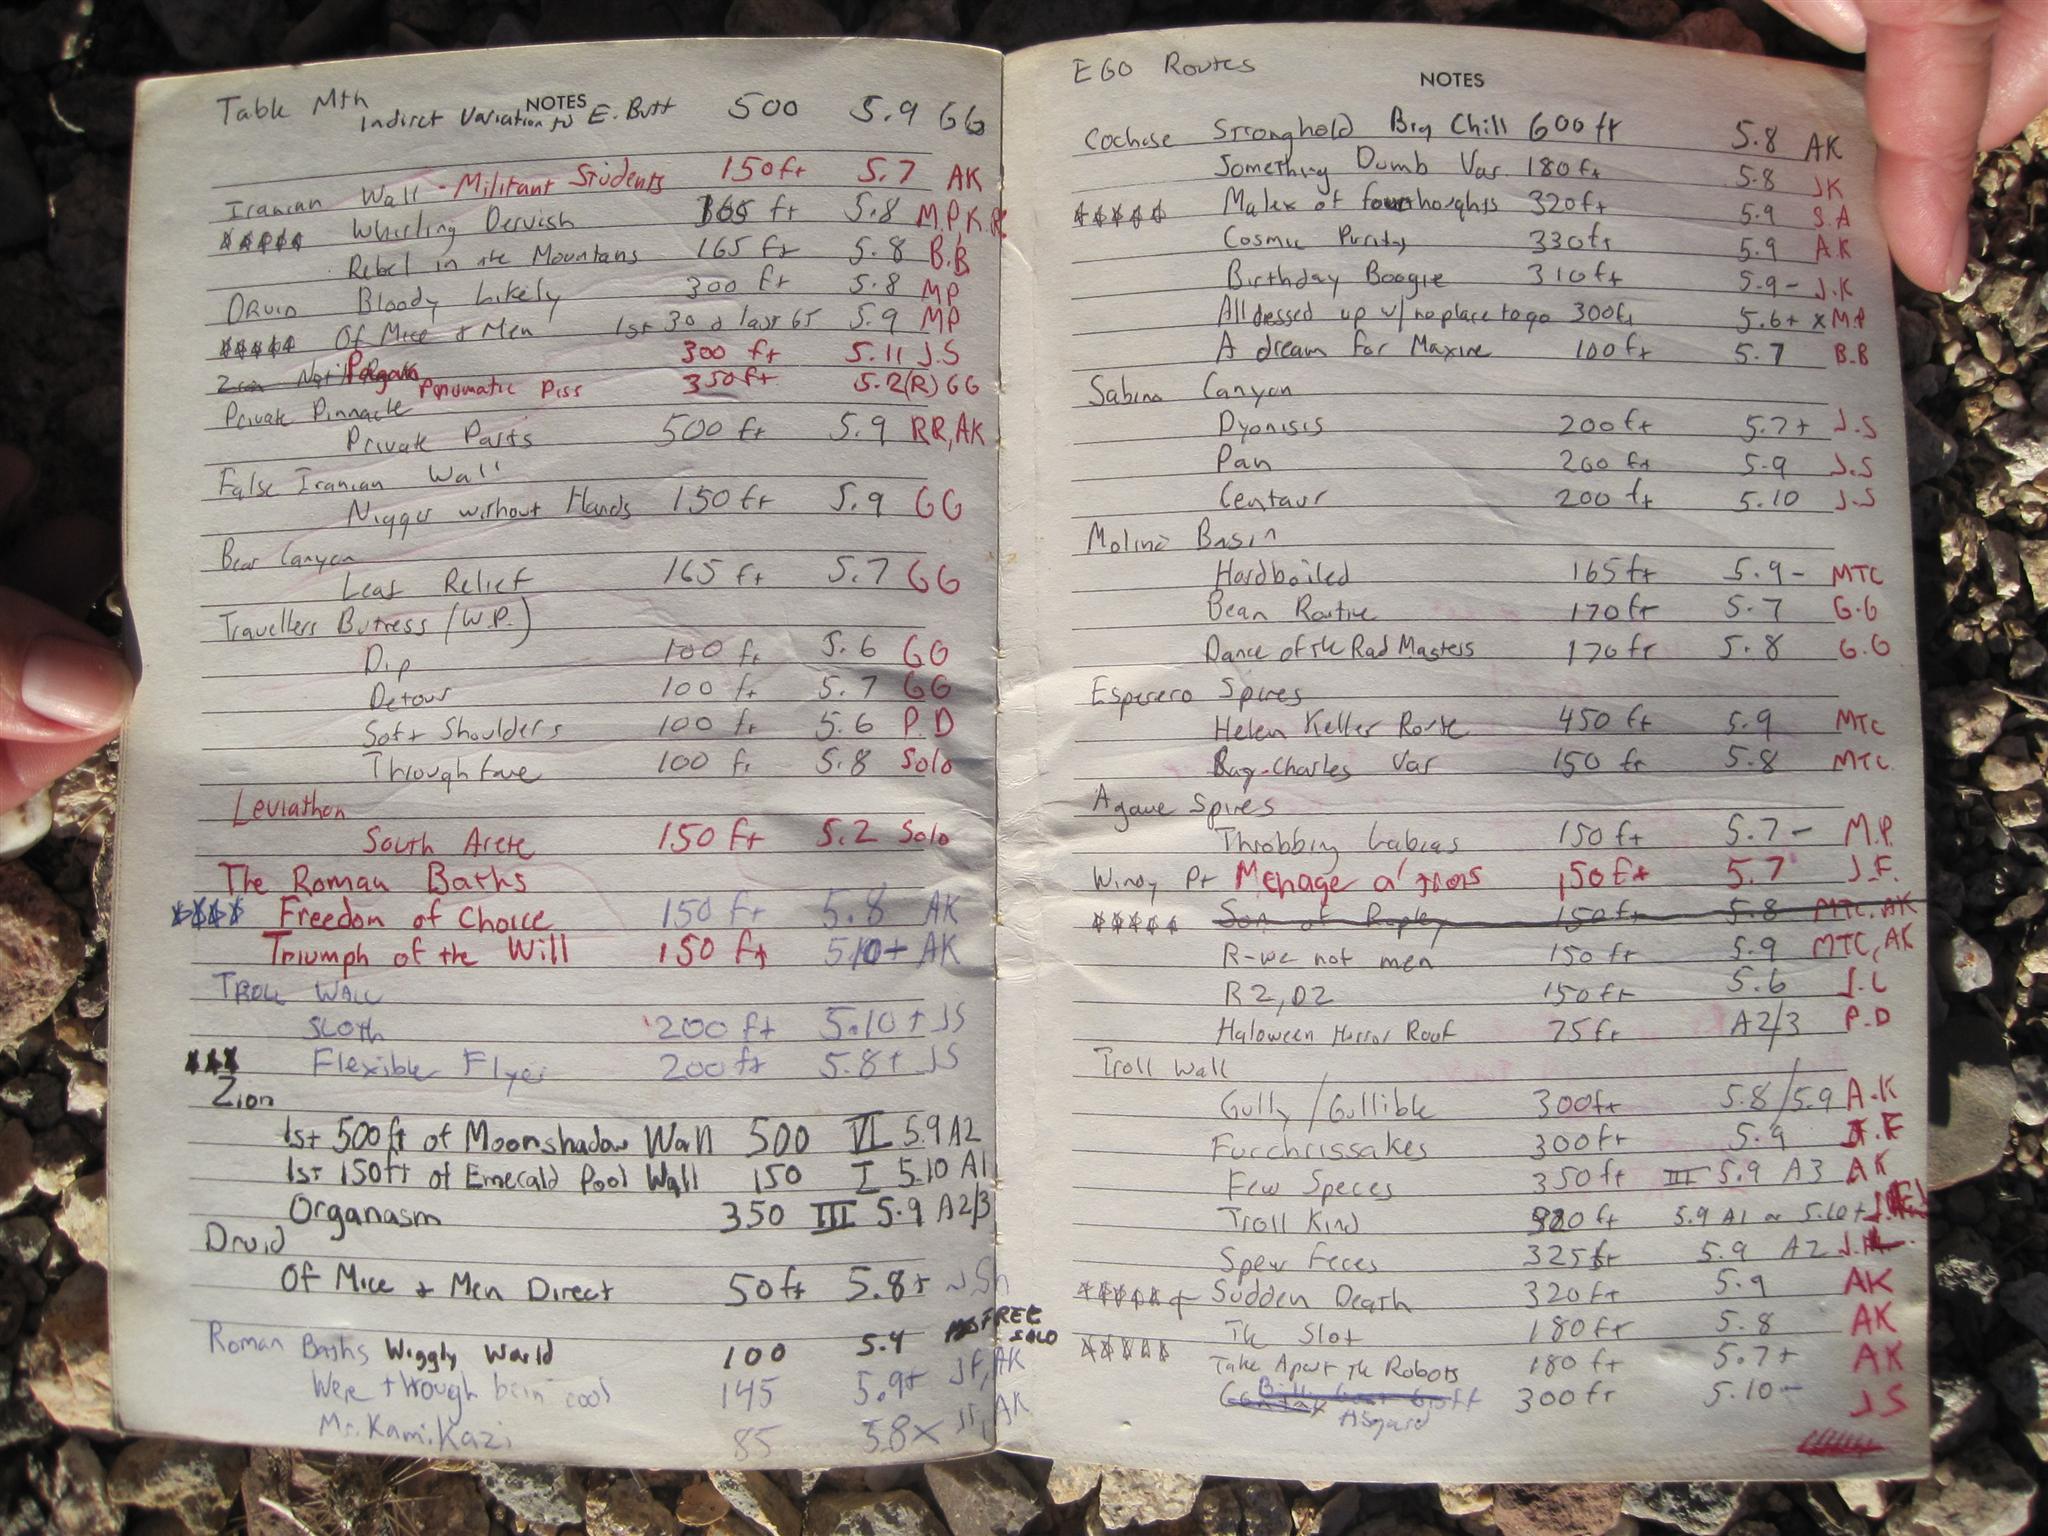 Table Mtn NOTES 500 5.9 GG
Indirect Variation to E. Butt
Iranian Wall - Militant Students 150ft 5.7 AK
Whirling Dervish 165 ft 5.8 M.P, K.R.
Rebel in the Mountains 165 ft 5.8 B.B
Druid Bloody Likely 300 ft 5.8 MP
Of Mice + Men 1st 30 & last 65 5.9 MP
300 ft 5.11 J.S
Pnumatic Piss 350ft 5.2(R) GG
Private Pinnacle
Private Parts 500 ft 5.9 RR, AK
False Iranian Wall
Nigger without Hands 150 ft 5.9 GG
Bear Canyon
Leaf Relief 165 ft 5.7 GG
Travellers Butress (W.P.)
Dip 100 ft 5.6 GG
Detour 100 ft 5.7 GG
Soft Shoulders 100 ft 5.6 P.D
Throughfare 100 ft 5.8 Solo
Leviathon
South Arete 150 ft 5.2 Solo
The Roman Baths
Freedom of Choice 150 ft 5.8 AK
Triumph of the Will 150 ft 5.10+ AK
Troll Wall
Sloth 200 ft 5.10+ JS
Flexible Flyer 200 ft 5.8+ JS
Zion
1st 500ft of Moonshadow Wall 500 VI 5.9 A2
1st 150ft of Emerald Pool Wall 150 I 5.10 A1
Organasm 350 III 5.9 A2/3
Druid
Of Mice + Men Direct 50ft 5.8+ JSh
Roman Baths Wiggly World 100 5.4 FREE SOLO
Were through bein cool 145 5.9+ JF, AK
Mr. Kamikazi 85 5.8x JF, AK
EGO Routes NOTES
Cochise Stronghold Big Chill 600 ft 5.8 AK
Something Dumb Var. 180 ft 5.8 JK
Malex of fourthoughts 320ft 5.9 S.A
Cosmic Purity 330ft 5.9 A.K
Birthday Boogie 310ft 5.9- J.K
All dressed up w/ no place to go 300ft 5.6+ x M.P
A dream for Maxine 100ft 5.7 B.B
Sabino Canyon
Dyonisis 200 ft 5.7+ J.S
Pan 200 ft 5.9 J.S
Centaur 200 ft 5.10 J.S
Molino Basin
Hardboiled 165ft 5.9- MTC
Bean Routine 170 ft 5.7 G.G
Dance of the Rad Masters 170 ft 5.8 G.G
Esperero Spires
Helen Keller Route 450 ft 5.9 MTC
Ray Charles Var 150 ft 5.8 MTC
Agave Spires
Throbbing Labias 150 ft 5.7- M.P.
Windy Pt Menage a' trois 150ft 5.7 J.F.
Son of Ropley 150 ft 5.8 MTC, AK
R-we not men 150 ft 5.9 MTC, AK
R2, D2 150 ft 5.6 J.L
Haloween Horror Roof 75ft A2/3 P.D
Troll Wall
Gully/Gullible 300ft 5.8/5.9 A.K
Furchrissakes 300ft 5.9 J.F
Few Speces 350ft III 5.9 A3 AK
Troll Kind ft 5.9 A1 or 5.10+
Spew Feces 325ft 5.9 A2
Sudden Death 320 ft 5.9 AK
The Slot 180 ft 5.8 AK
Take Apart the Robots 180 ft 5.7+ AK
Asgard 300 ft 5.10- JS